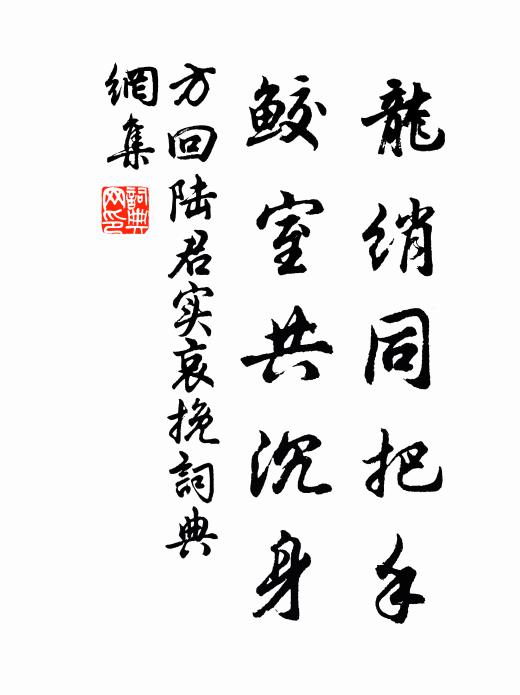 龍绡同把手
鮫室共沉身
方回陆君实哀挽詞典
網集
詞典网印